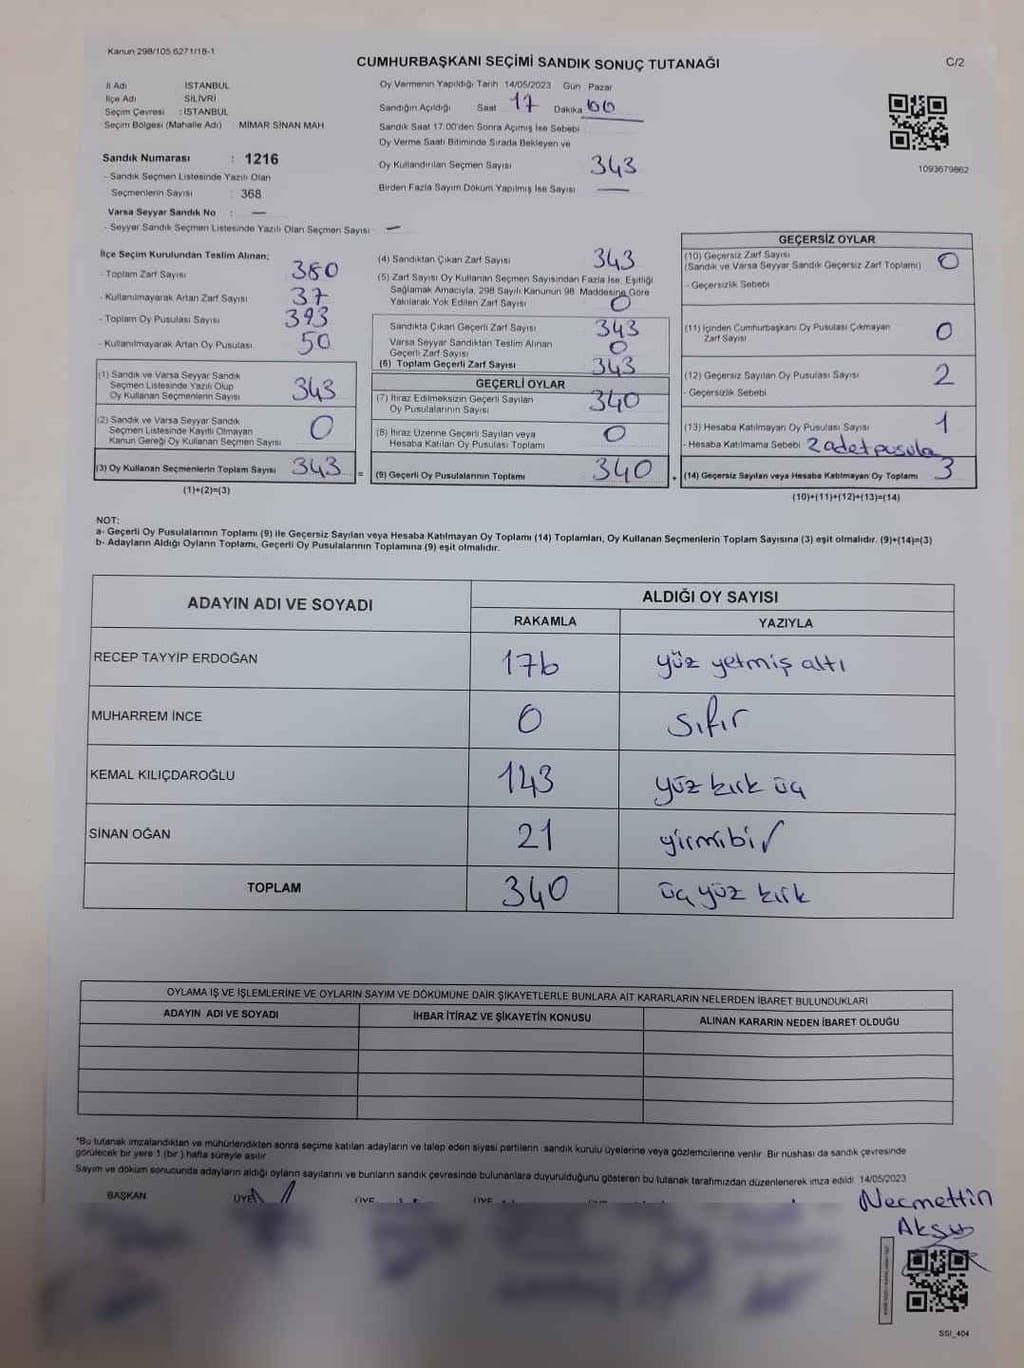 Kanun 298/105 6271/18-1
CUMHURBAŞKANI SEÇİMİ SANDIK SONUÇ TUTANAĞI
C/2
İl Adı İSTANBUL
İlçe Adı SİLİVRİ
Seçim Çevresi : İSTANBUL
Seçim Bölgesi (Mahalle Adı) MİMAR SİNAN MAH
Sandık Numarası : 1216
- Sandık Seçmen Listesinde Yazılı Olan
Seçmenlerin Sayısı : 368
Varsa Seyyar Sandık No : —
- Seyyar Sandık Seçmen Listesinde Yazılı Olan Seçmen Sayısı —
Oy Vermenin Yapıldığı Tarih 14/05/2023 Gün Pazar
Sandığın Açıldığı Saat 17 Dakika 00
Sandık Saat 17:00'den Sonra Açımış İse Sebebi
Oy Verme Saati Bitiminde Sırada Bekleyen ve
Oy Kullandırılan Seçmen Sayısı 343
Birden Fazla Sayım Döküm Yapılmış İse Sayısı —
1093679862
İlçe Seçim Kurulundan Teslim Alınan;
- Toplam Zarf Sayısı 380
- Kullanılmayarak Artan Zarf Sayısı 37
- Toplam Oy Pusulası Sayısı 393
- Kullanılmayarak Artan Oy Pusulası 50
(1) Sandık ve Varsa Seyyar Sandık
Seçmen Listesinde Yazılı Olup
Oy Kullanan Seçmenlerin Sayısı 343
(2) Sandık ve Varsa Seyyar Sandık
Seçmen Listesinde Kayıtlı Olmayan
Kanun Gereği Oy Kullanan Seçmen Sayısı 0
(3) Oy Kullanan Seçmenlerin Toplam Sayısı 343 =
(1)+(2)=(3)
(4) Sandıktan Çıkan Zarf Sayısı 343
(5) Zarf Sayısı Oy Kullanan Seçmen Sayısından Fazla İse, Eşitliği
Sağlamak Amacıyla, 298 Sayılı Kanunun 98. Maddesine Göre
Yakılarak Yok Edilen Zarf Sayısı 0
Sandıkta Çıkan Geçerli Zarf Sayısı 343
Varsa Seyyar Sandıktan Teslim Alınan
Geçerli Zarf Sayısı 0
(6) Toplam Geçerli Zarf Sayısı 343
GEÇERLİ OYLAR
(7) İtiraz Edilmeksizin Geçerli Sayılan
Oy Pusulalarının Sayısı 340
(8) İtiraz Üzerine Geçerli Sayılan veya
Hesaba Katılan Oy Pusulası Toplamı 0
(9) Geçerli Oy Pusulalarının Toplamı 340 +
GEÇERSİZ OYLAR
(10) Geçersiz Zarf Sayısı
(Sandık ve Varsa Seyyar Sandık Geçersiz Zarf Toplamı) 0
- Geçersizlik Sebebi
(11) İçinden Cumhurbaşkanı Oy Pusulası Çıkmayan
Zarf Sayısı 0
(12) Geçersiz Sayılan Oy Pusulası Sayısı 2
- Geçersizlik Sebebi
(13) Hesaba Katılmayan Oy Pusulası Sayısı 1
- Hesaba Katılmama Sebebi 2 adet pusula
(14) Geçersiz Sayılan veya Hesaba Katılmayan Oy Toplamı 3
(10)+(11)+(12)+(13)=(14)
NOT:
a- Geçerli Oy Pusulalarının Toplamı (9) ile Geçersiz Sayılan veya Hesaba Katılmayan Oy Toplamı (14) Toplamları, Oy Kullanan Seçmenlerin Toplam Sayısına (3) eşit olmalıdır. (9)+(14)=(3)
b- Adayların Aldığı Oyların Toplamı, Geçerli Oy Pusulalarının Toplamına (9) eşit olmalıdır.
ADAYIN ADI VE SOYADI
ALDIĞI OY SAYISI
RAKAMLA YAZIYLA
RECEP TAYYİP ERDOĞAN 176 yüz yetmiş altı
MUHARREM İNCE 0 sıfır
KEMAL KILIÇDAROĞLU 143 yüz kırk üç
SİNAN OĞAN 21 yirmibir
TOPLAM 340 üç yüz kırk
OYLAMA İŞ VE İŞLEMLERİNE VE OYLARIN SAYIM VE DÖKÜMÜNE DAİR ŞİKAYETLERLE BUNLARA AİT KARARLARIN NELERDEN İBARET BULUNDUKLARI
ADAYIN ADI VE SOYADI İHBAR İTİRAZ VE ŞİKAYETİN KONUSU ALINAN KARARIN NEDEN İBARET OLDUĞU
*Bu tutanak imzalandıktan ve mühürlendikten sonra seçime katılan adayların ve talep eden siyasi partilerin sandık kurulu üyelerine veya gözlemcilerine verilir. Bir nüshası da sandık çevresinde
görülecek bir yere 1 (bir) hafta süreyle asılır
Sayım ve döküm sonucunda adayların aldığı oyların sayılarını ve bunların sandık çevresinde bulunanlara duyurulduğunu gösteren bu tutanak tarafımızdan düzenlenerek imza edildi. 14/05/2023
BAŞKAN ÜYE ÜYE ÜYE
Necmettin
SSI_404